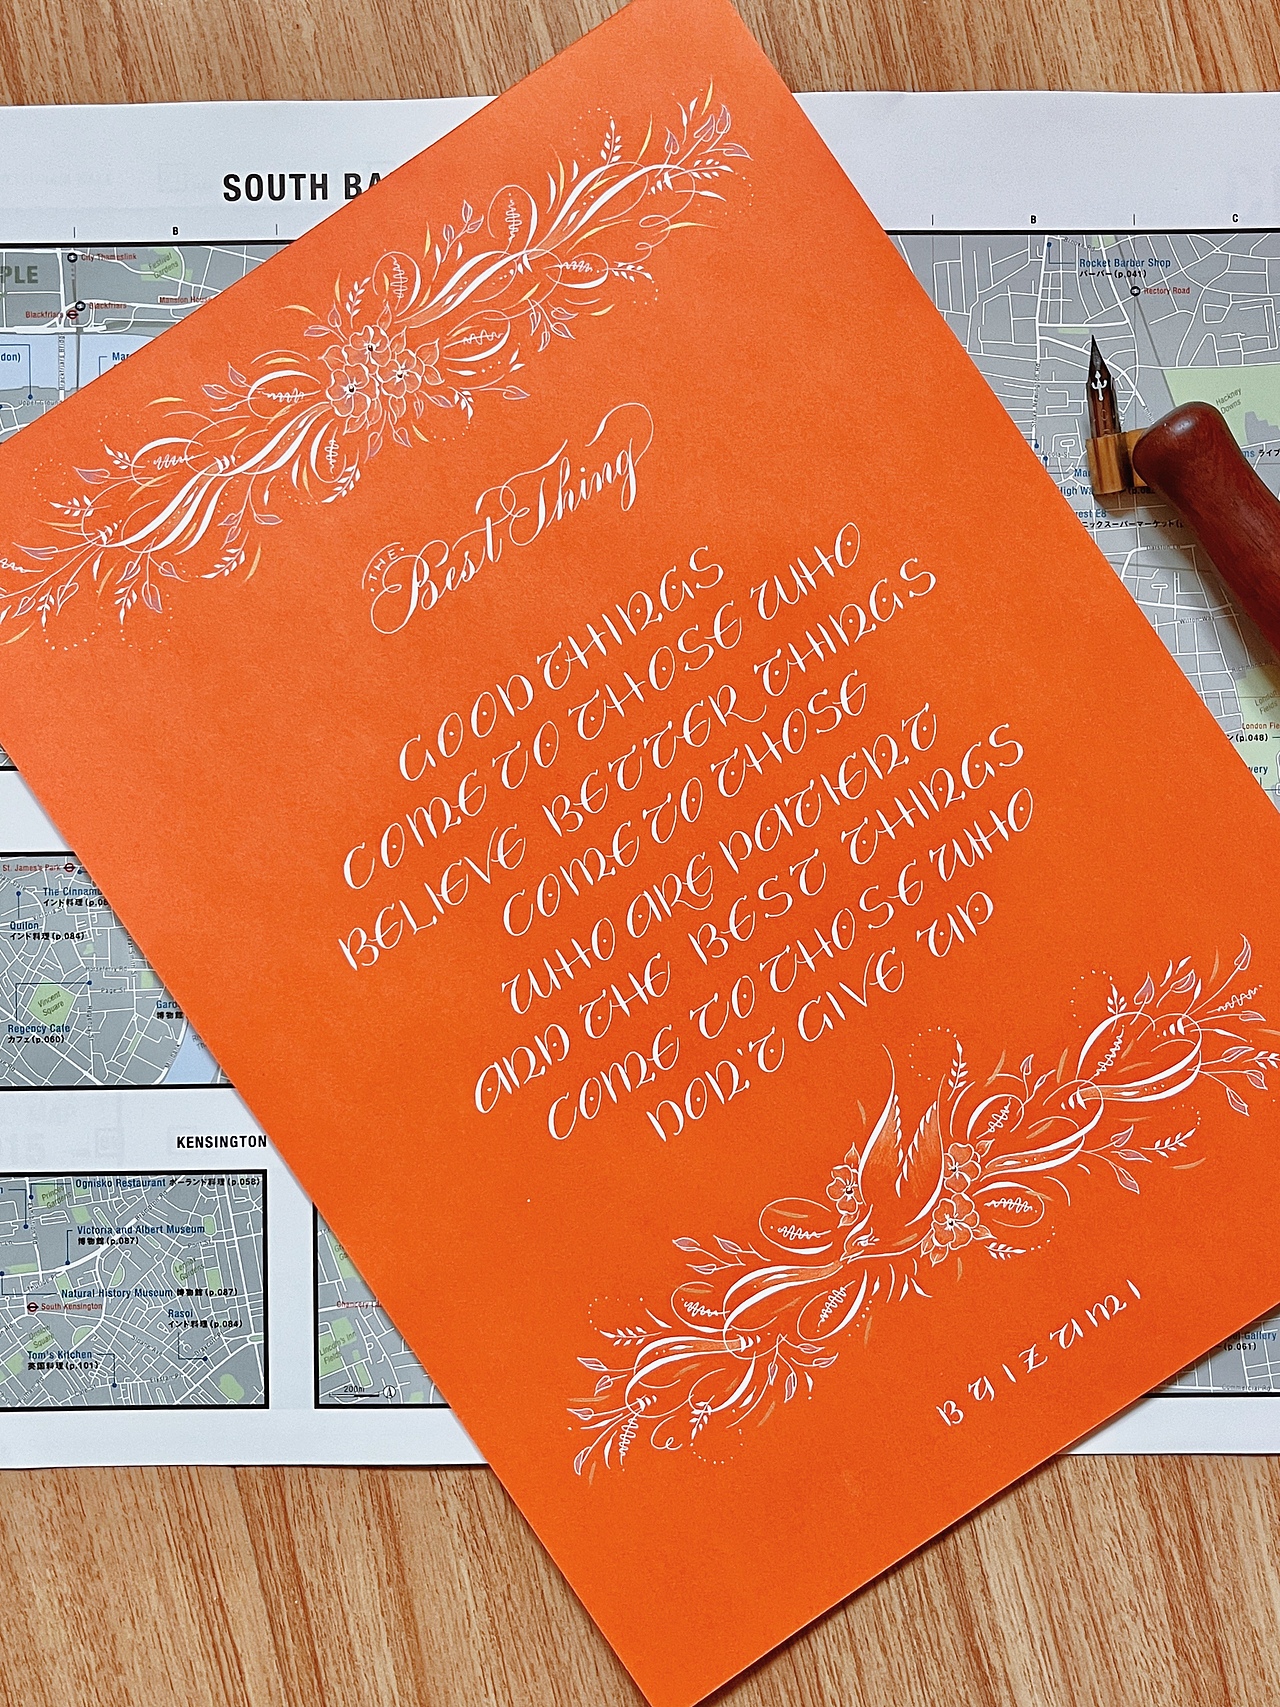 THE
Best Thing
GOOD THINGS
COME TO THOSE WHO
BELIEVE BETTER THINGS
COME TO THOSE
WHO ARE PATIENT
AND THE BEST THINGS
COME TO THOSE WHO
DON'T GIVE UP
BY IZUMI
SOUTH
B
B
C
City Thameslink
Festival Gardens
Blackfriars
Blackfriars
Mansion House
Rocket Barber Shop
バーバー (p.041)
Rectory Road
Hackney Downs
ニックスーパーマーケット
London
(p.048)
St. James's Park
The
インド料理
Quilon
インド料理 (p.084)
Vincent Square
Regency Cafe
カフェ (p.060)
博物館
KENSINGTON
Ognisko Restaurant ポーランド料理 (p.058)
Victoria and Albert Museum
博物館 (p.087)
Natural History Museum 博物館 (p.087)
South Kensington
Rasoi
インド料理 (p.084)
Tom's Kitchen
英国料理 (p.101)
Chancery
Lincoln's Inn Fields
200m
Gallery
(p.061)